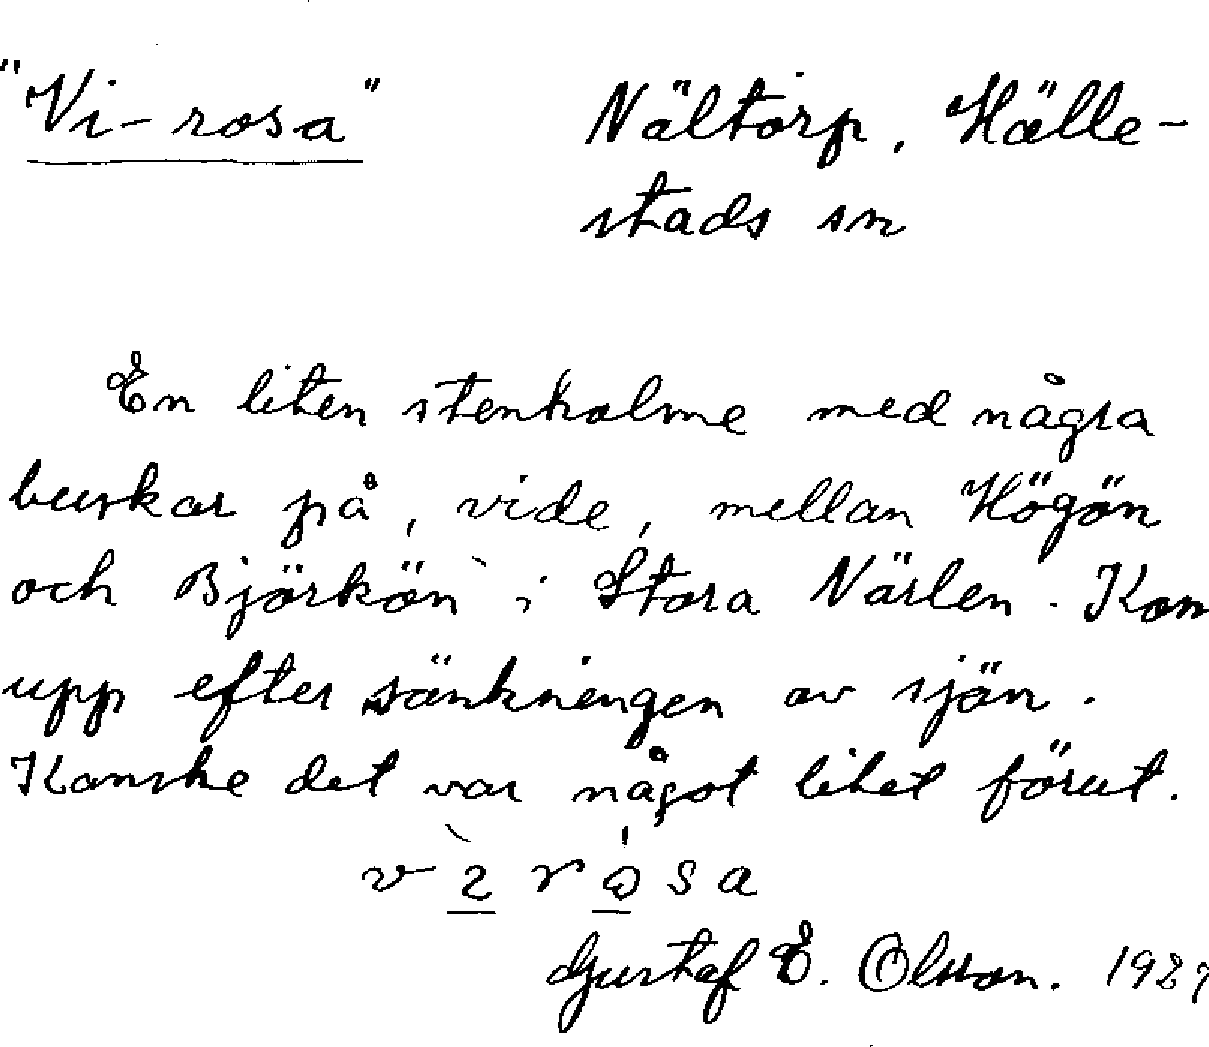 "Vi-rosa" Nältorp, Hälle-
stads sn
En liten stenholme med några
buskar på, vide, mellan Högön
och Björkön i Stora Närlen. Kom
upp efter sänkningen av sjön.
Kanske det var något litet förut.
Gustaf E. Olsson.